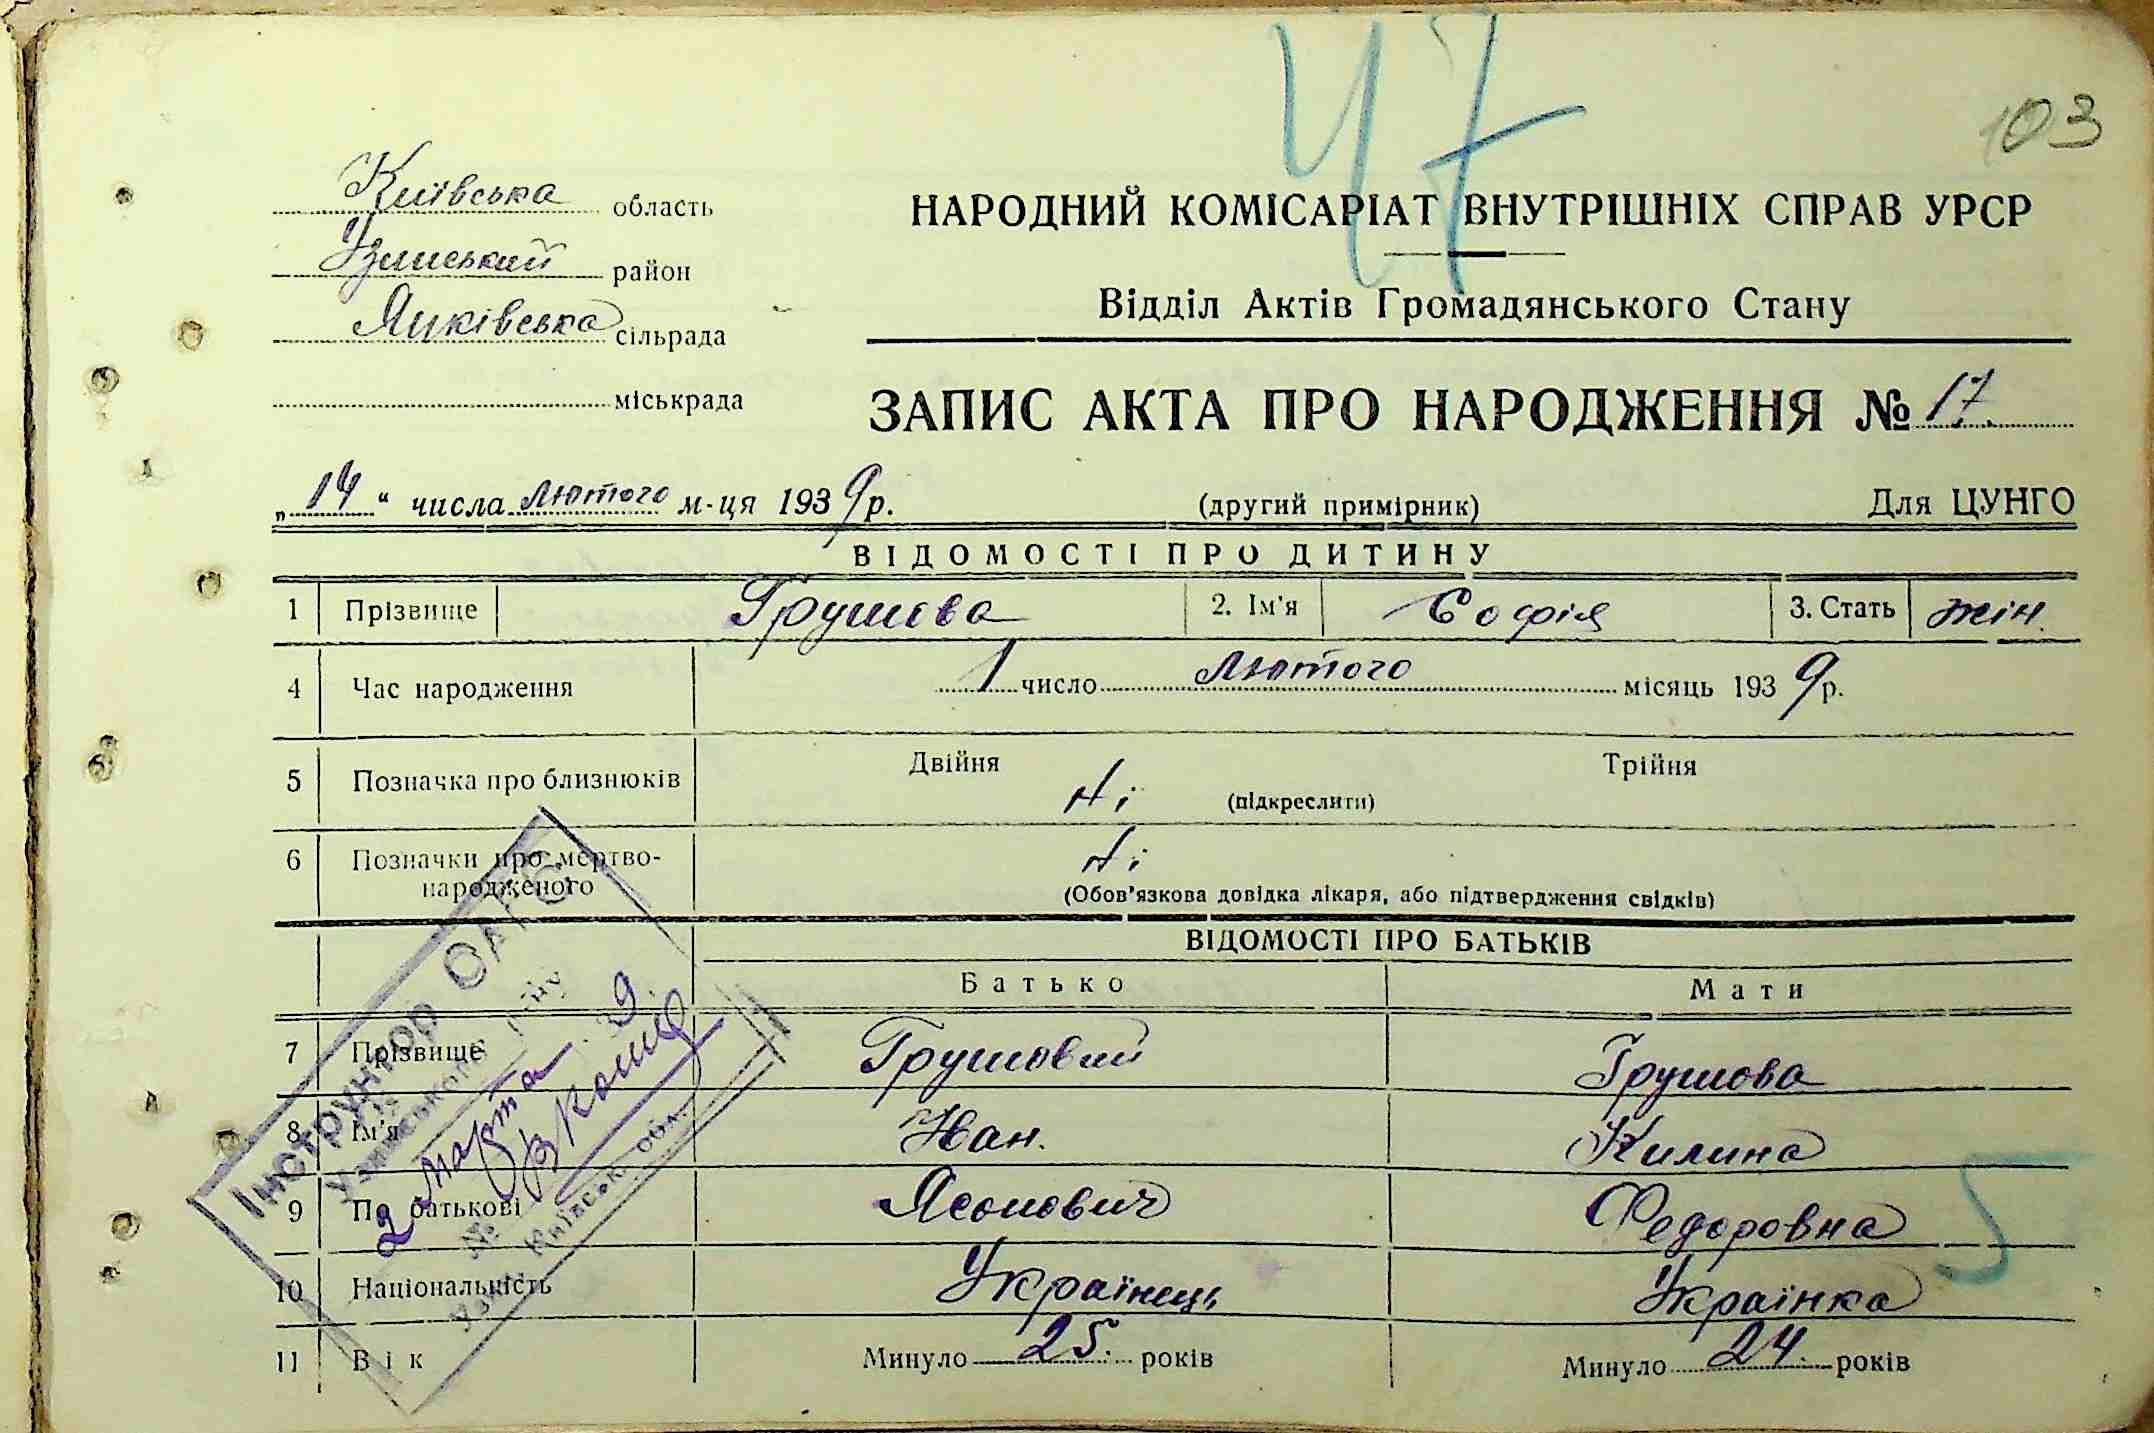 47
103
Київська область
Узинський район
Яцківська сільрада
міськрада
НАРОДНИЙ КОМІСАРІАТ ВНУТРІШНІХ СПРАВ УРСР
Відділ Актів Громадянського Стану
ЗАПИС АКТА ПРО НАРОДЖЕННЯ № 17.
„14“ числа лютого м-ця 1939 р. (другий примірник) Для ЦУНГО
ВІДОМОСТІ ПРО ДИТИНУ
1 Прізвище Грушева 2. Ім'я Софія 3. Стать жін.
4 Час народження 1 число лютого місяць 1939 р.
5 Позначка про близнюків Двійня Ні (підкреслити) Трійня
6 Позначки про мертво-
народженого Ні
(Обов'язкова довідка лікаря, або підтвердження свідків)
ВІДОМОСТІ ПРО БАТЬКІВ
Батько Мати
7 Прізвище Грушовий Грушова
8 Ім'я Іван. Килина
9 По батькові Ясонович Федоровна
10 Національність Українець Українка 5
11 Вік Минуло 25. років Минуло 24. років
Інструктор ОАГС
Узинського р-ну
2 марта 39
№
Київськ. обл.